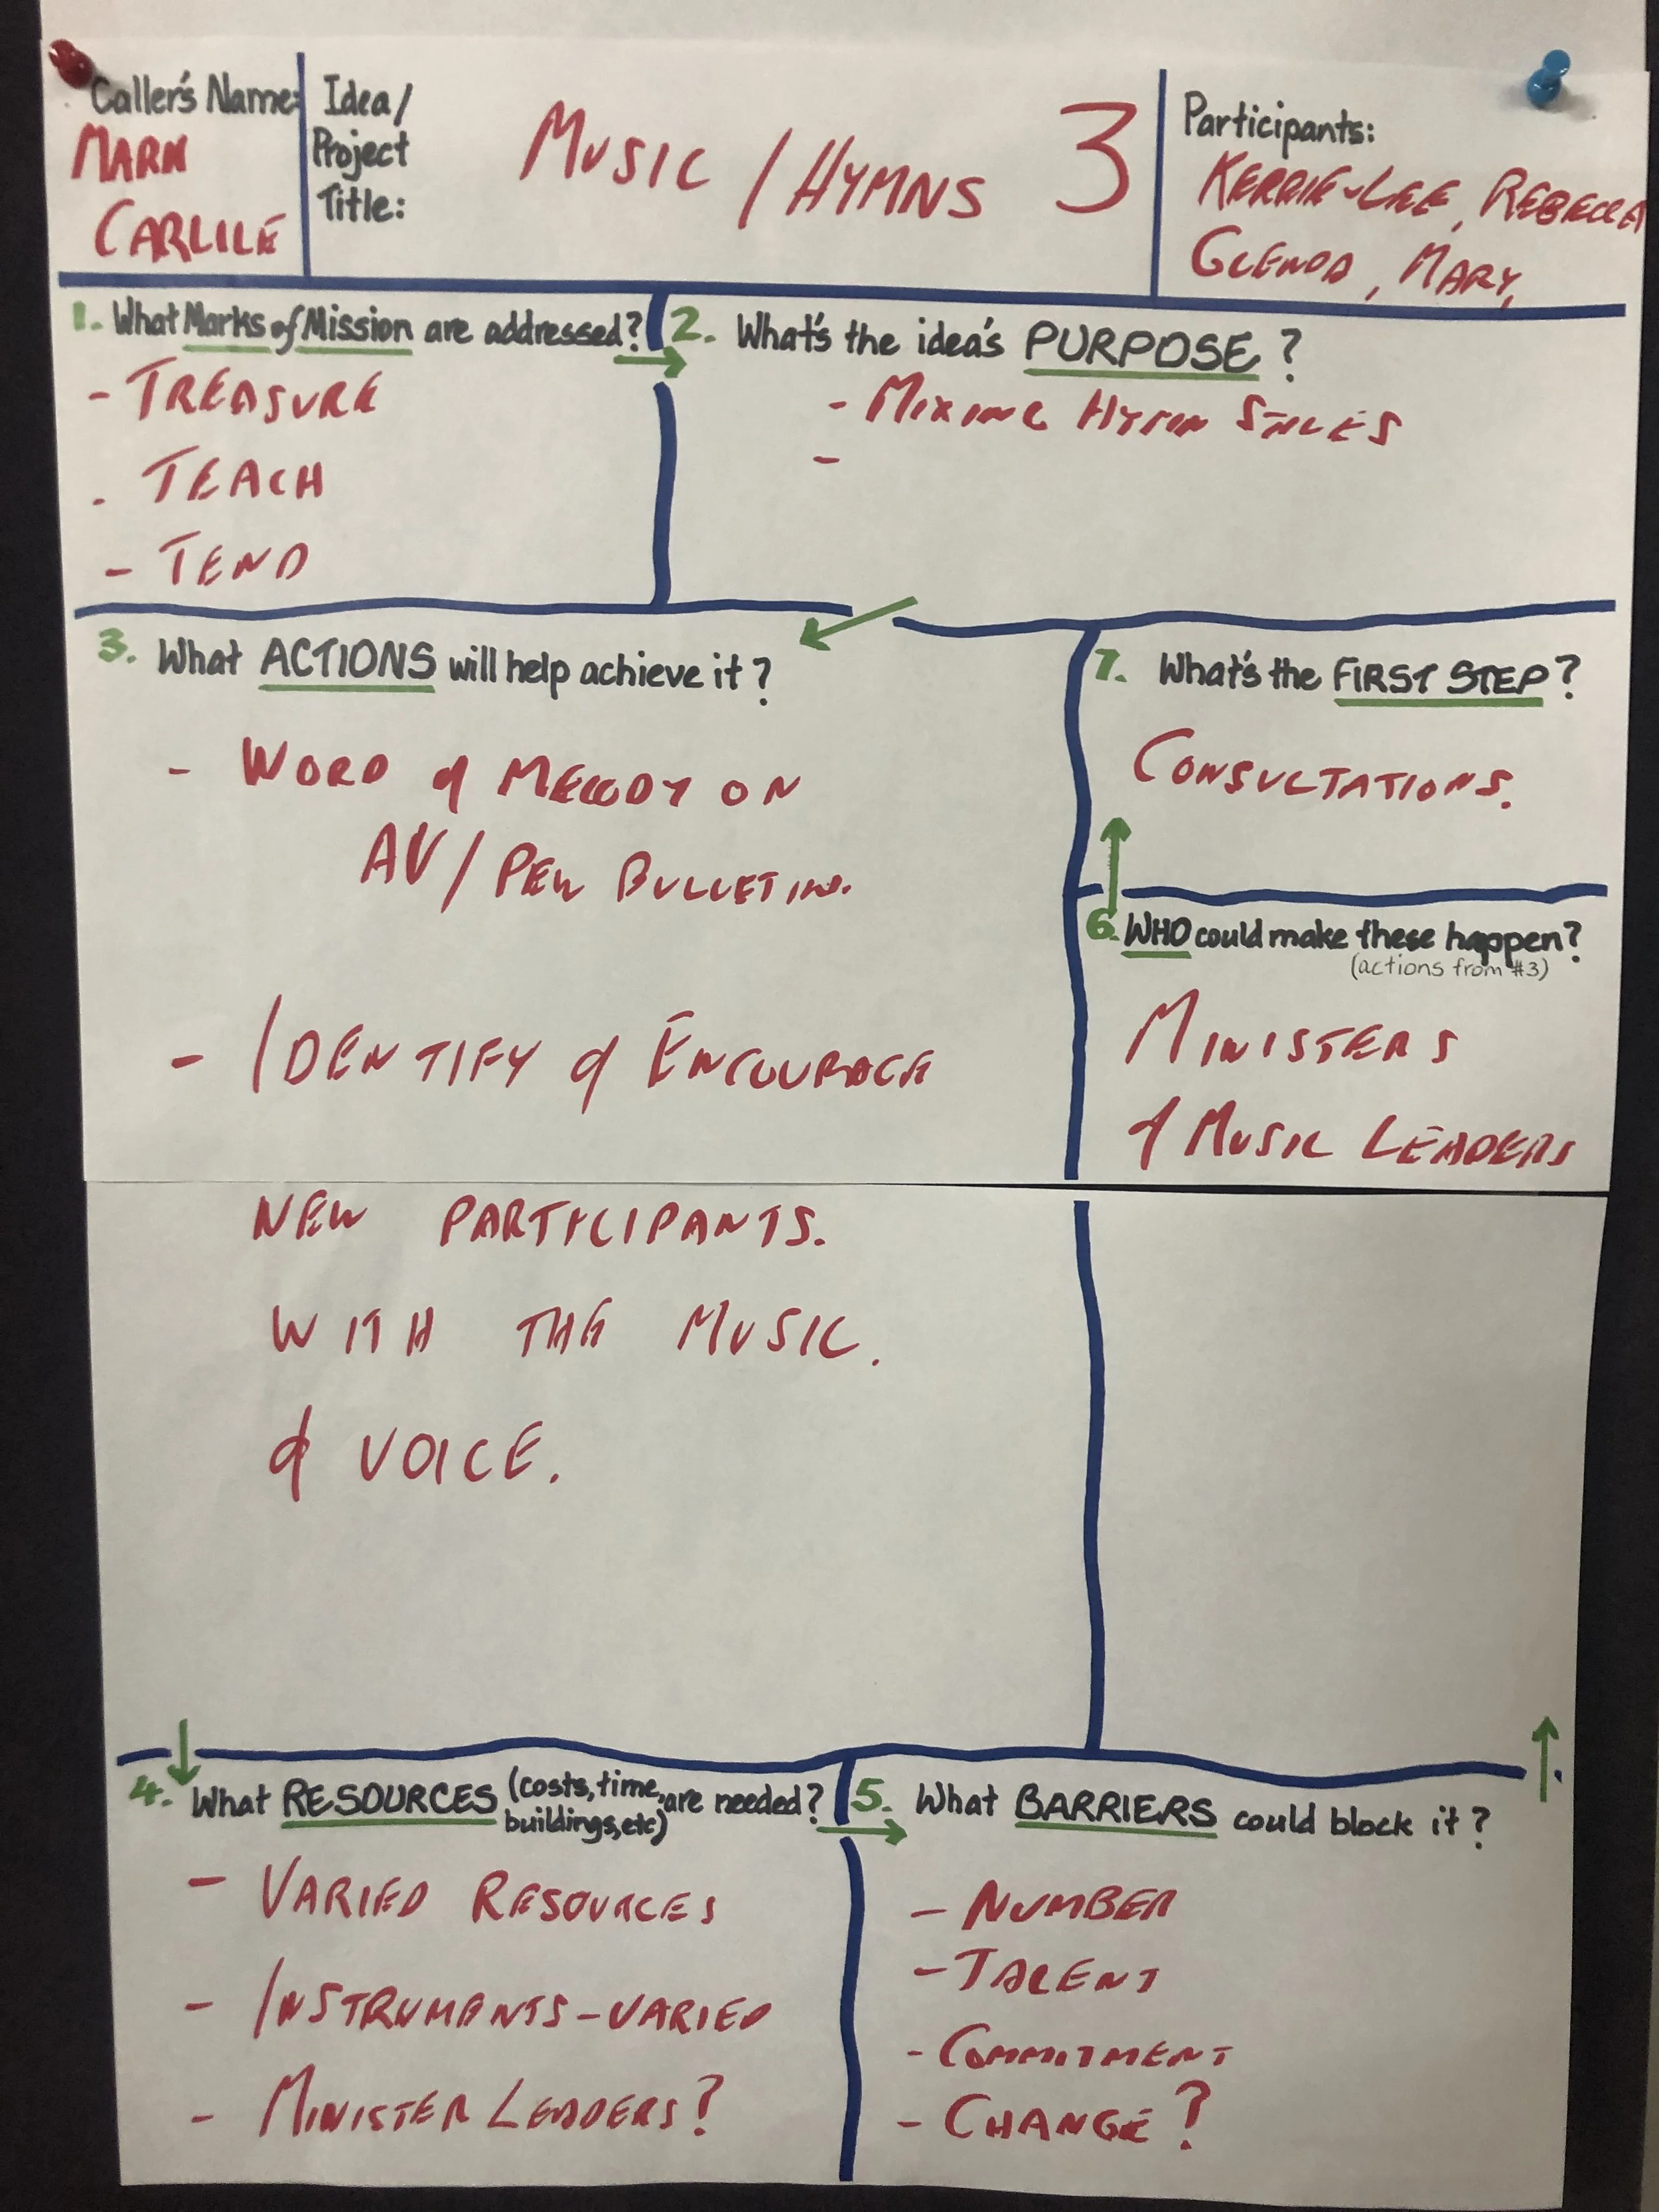 Caller's Name:
MARK
CARLILE
Idea/
Project
Title:
MUSIC / HYMNS 3
Participants:
KERRIE-LEE, REBECCA
GLENDA, MARY,
1. What Marks of Mission are addressed?
- TREASURE
- TEACH
- TEND
2. What's the idea's PURPOSE?
- MIXING HYMN STYLES
-
3. What ACTIONS will help achieve it?
- WORD & MELODY ON
AV / PEW BULLETIN.
- IDENTIFY & ENCOURAGE
NEW PARTICIPANTS.
WITH THE MUSIC.
& VOICE.
4. What RESOURCES (costs, time, buildings, etc) are needed?
- VARIED RESOURCES
- INSTRUMENTS - VARIED
- MINISTER LEADERS?
5. What BARRIERS could block it?
- NUMBER
- TALENT
- COMMITMENT
- CHANGE?
6. WHO could make these happen?
(actions from #3)
MINISTERS
& MUSIC LEADERS
7. What's the FIRST STEP?
CONSULTATIONS.